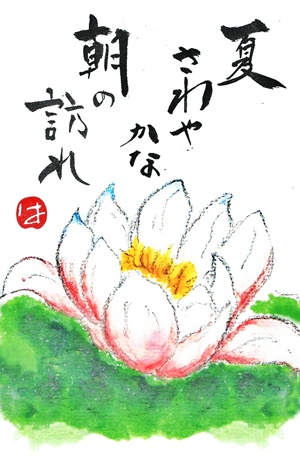 夏
さわや
かな
朝の
訪れ
は